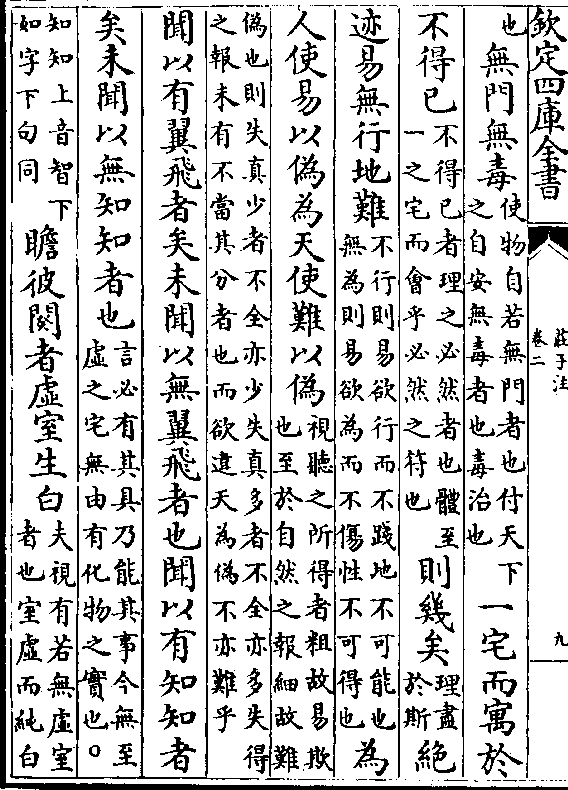 欽定四庫全書
莊子注
卷二
九
也無門無毒使物自若無門者也付天下之自安無毒者也毒治也一宅而寓於
不得已不得已者理之必然者也體至一之宅而會乎必然之符也則幾矣理盡於斯絕
迹易無行地難不行則易欲行而不踐地不可能也無為則易欲為而不傷性不可得也為
人使易以偽為天使難以偽視聽之所得者粗故易欺也至於自然之報細故難
偽也則失真少者不全亦少失真多者不全亦多失得之報未有不當其分者也而欲違天為偽不亦難乎
聞以有翼飛者矣未聞以無翼飛者也聞以有知知者
矣未聞以無知知者也言必有其具乃能其事今無至虛之宅無由有化物之實也○
知知上音智下如字下句同瞻彼闋者虛室生白夫視有若無虛室者也室虛而純白